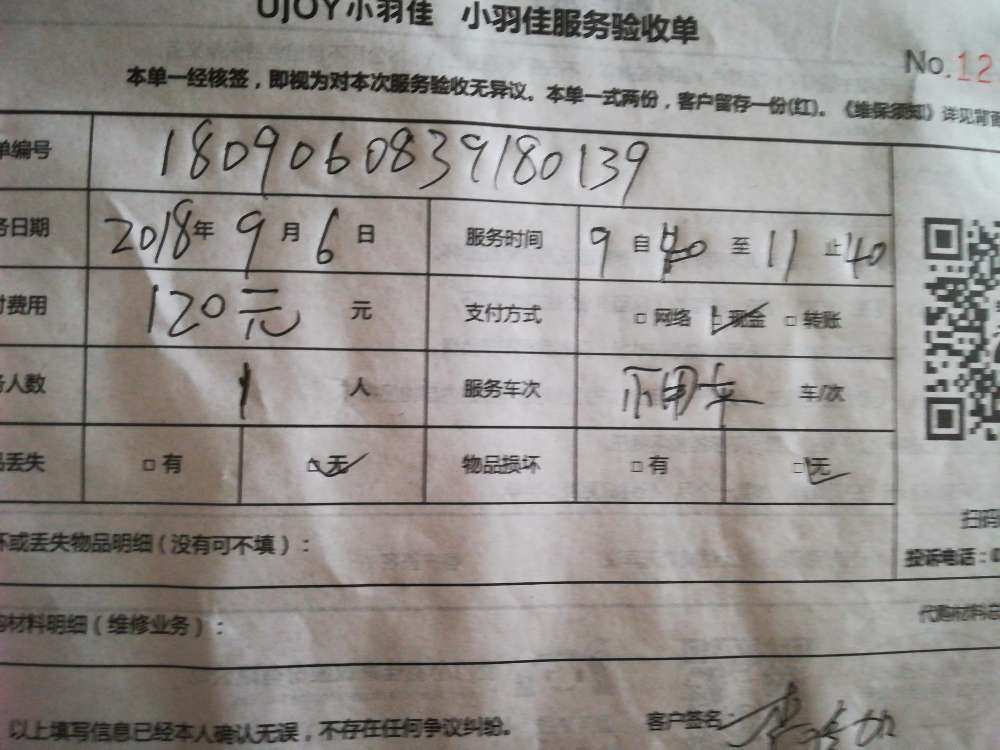 UJOY小羽佳 小羽佳服务验收单
No.12
本单一经核签，即视为对本次服务验收无异议。本单一式两份，客户留存一份(红)。《维保须知》详见背面
单编号 1809060839180139
务日期 2018年 9月 6日 服务时间 9 自 40 至 11 止 40
付费用 120元 元 支付方式 □ 网络 □ 现金 □ 转账
务人数 1 人 服务车次 不用车 车/次
品丢失 □ 有 □ 无 物品损坏 □ 有 □ 无
扫码
坏或丢失物品明细（没有可不填）：
投诉电话：0
购材料明细（维修业务）：
代购材料总
以上填写信息已经本人确认无误，不存在任何争议纠纷。 客户签名：